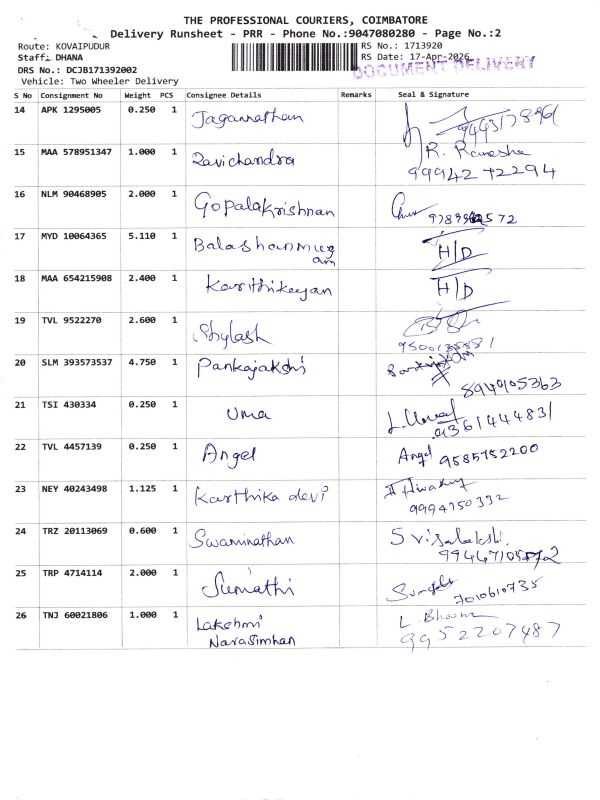 THE PROFESSIONAL COURIERS, COIMBATORE
Delivery Runsheet - PRR - Phone No.:9047080280 - Page No.:2
Route: KOVAIPUDUR RS No.: 1713920
Staff: DHANA RS Date: 17-Apr-2026
DOCUMENT DELIVERY
DRS No.: DCJB171392002
Vehicle: Two Wheeler Delivery
S No Consignment No Weight PCS Consignee Details Remarks Seal & Signature
14 APK 1295005 0.250 1 Jagannathan
15 MAA 578951347 1.000 1 Ravichandra R. Ramesha
99942 72294
16 NLM 90468905 2.000 1 Gopalakrishnan
17 MYD 10064365 5.110 1 Balashanmug H/D
am
18 MAA 654215908 2.400 1 Karthikeyan H/D
19 TVL 9522270 2.600 1 Shylash
20 SLM 393573537 4.750 1 Pankajakshi
8949105363
21 TSI 430334 0.250 1 Uma
9361444831
22 TVL 4457139 0.250 1 Angel Angel 9585752200
23 NEY 40243498 1.125 1 Karthika devi
9994750332
24 TRZ 20113069 0.600 1 Swaminathan S Visalakshi
25 TRP 4714114 2.000 1 Sumathi
7010610735
26 TNJ 60021806 1.000 1 Lakshmi L. Bhooma
Narasimhan 9952207487